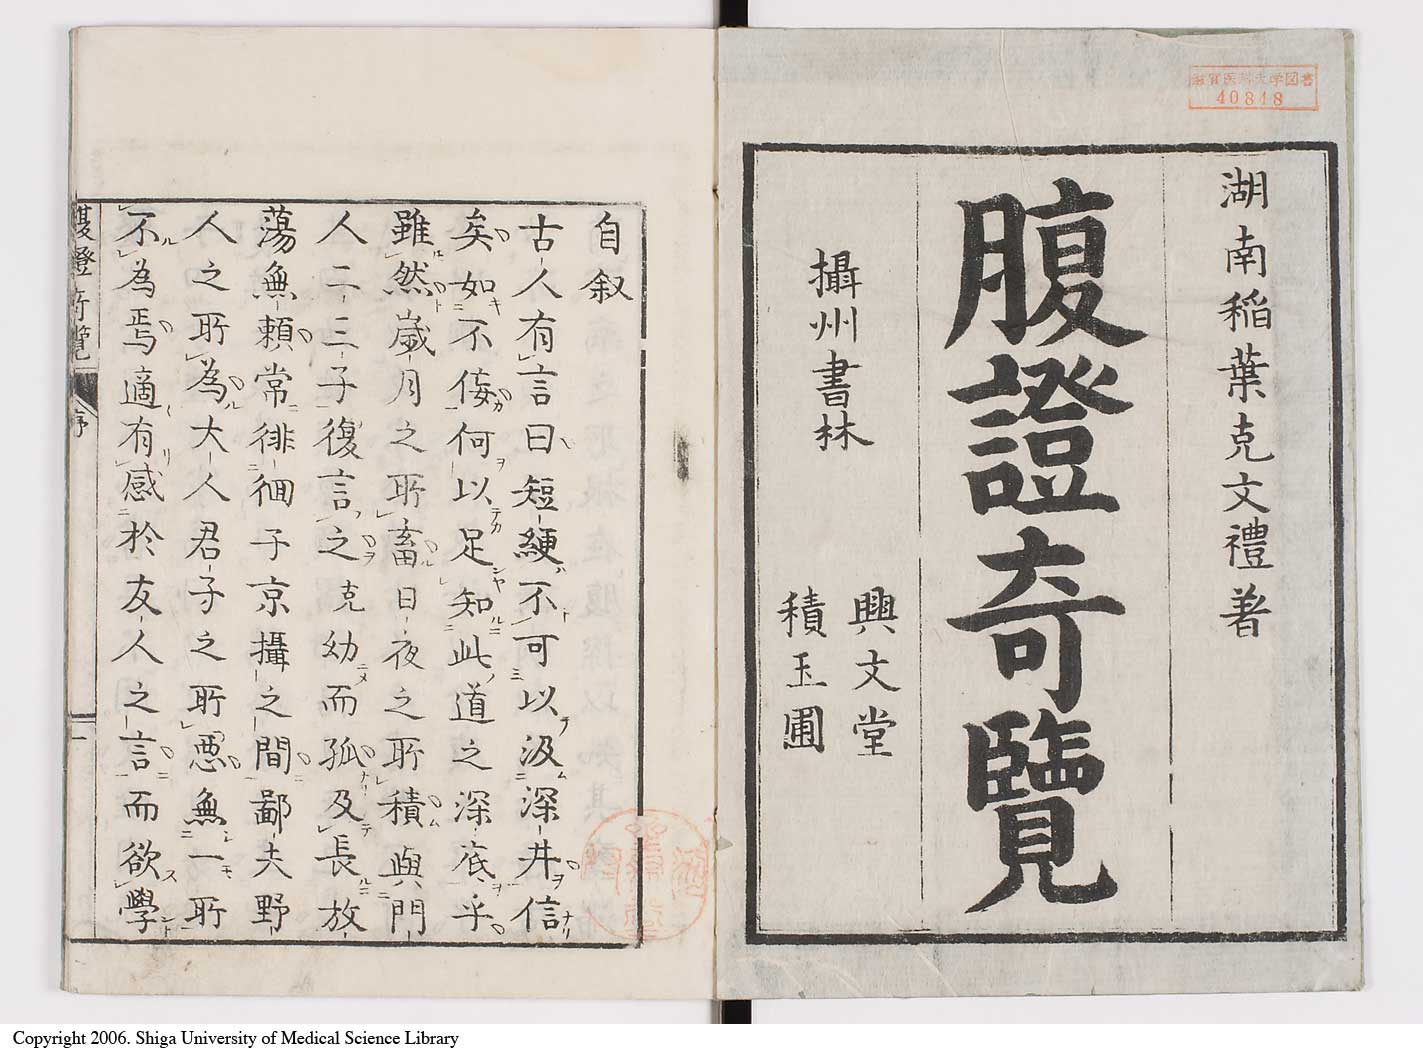 滋賀医科大学図書
40848
湖南稲葉克文禮著
腹證奇覽
攝州書林
興文堂
積玉圃
自叙
古人有言曰短綆不可以汲深井信
矣如不侮何以足知此道之深底乎
雖然歳月之所畜日夜之所積與門
人二三子復言之克幼而孤及長放
蕩無頼常徘徊于京攝之間鄙夫野
人之所為大人君子之所惡無一所
不為焉適有感於友人之言而欲學
腹證奇覽
序
一
Copyright 2006. Shiga University of Medical Science Library